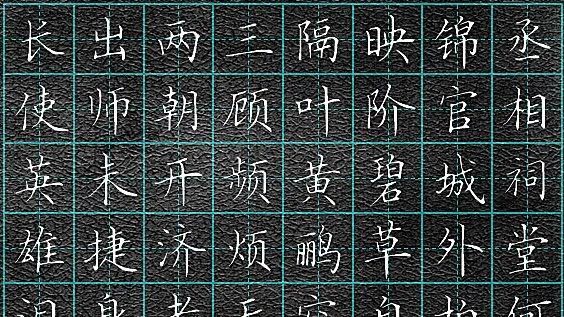 丞相祠堂
锦官城外
映阶碧草
隔叶黄鹂
三顾频烦
两朝开济
出师未捷
长使英雄